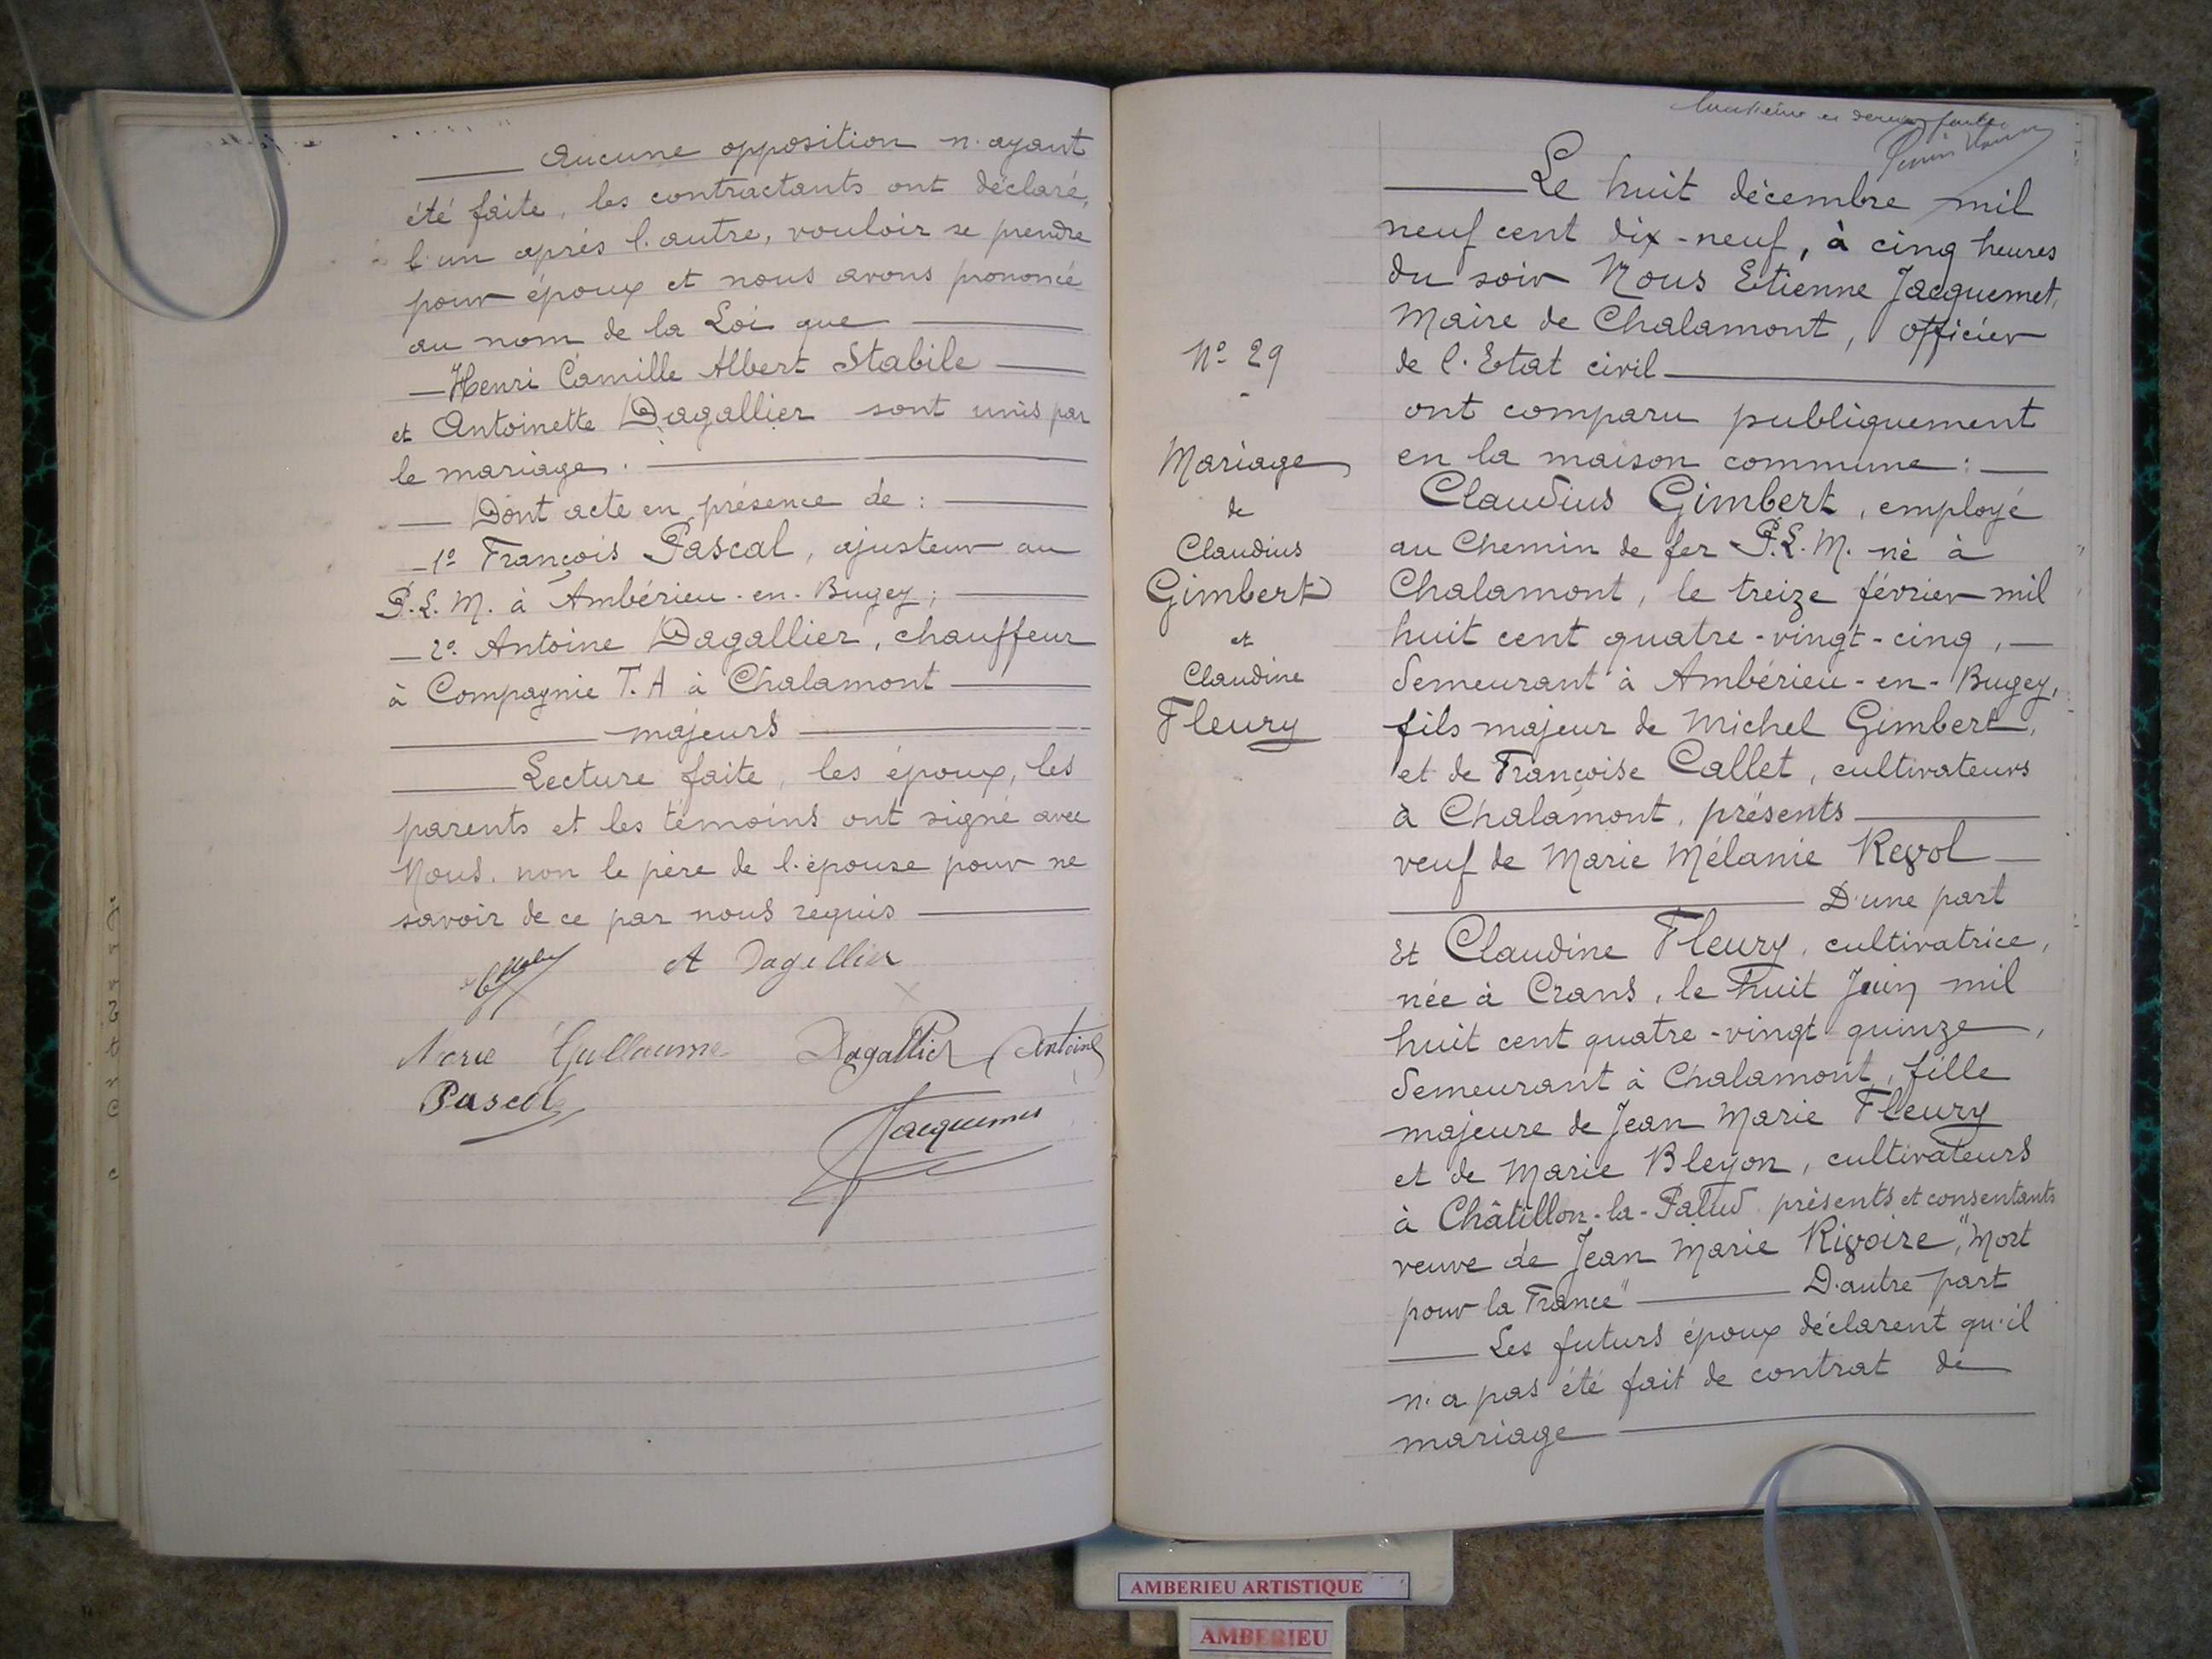 Aucune opposition n'ayant
été faite, les contractants ont déclaré,
l'un après l'autre, vouloir se prendre
pour époux et nous avons prononcé
au nom de la Loi que
Henri Camille Albert Stabile
et Antoinette Dagallier sont unis par
le mariage.
Dont acte en présence de :
1º François Pascal, ajusteur au
P.L.M. à Ambérieu-en-Bugey ;
2º Antoine Dagallier, chauffeur
à Compagnie T.A à Chalamont
majeurs
Lecture faite, les époux, les
parents et les témoins ont signé avec
Nous. non le père de l'épouse pour ne
savoir de ce par nous requis
A Dagallier
Marie Guillaume Dagallier Antoine
Pascal
Jacquemet
Le huit décembre mil
neuf cent dix-neuf, à cinq heures
du soir Nous Etienne Jacquemet,
Maire de Chalamont, officier
de l'Etat civil
ont comparu publiquement
en la maison commune :
Claudius Gimbert, employé
au Chemin de fer P.L.M. né à
Chalamont, le treize février mil
huit cent quatre-vingt-cinq,
demeurant à Ambérieu-en-Bugey,
fils majeur de Michel Gimbert,
et de Françoise Callet, cultivateurs
à Chalamont, présents
veuf de Marie Mélanie Revol
D'une part
Et Claudine Fleury, cultivatrice,
née à Crans, le huit Juin mil
huit cent quatre-vingt quinze,
demeurant à Chalamont, fille
majeure de Jean Marie Fleury
et de Marie Bleyon, cultivateurs
à Châtillon-la-Palud présents et consentants
veuve de Jean Marie Rivoire, "Mort
pour la France" D'autre part
Les futurs époux déclarent qu'il
n'a pas été fait de contrat de
mariage
Nº 29
Mariage
de
Claudius
Gimbert
et
Claudine
Fleury
AMBERIEU ARTISTIQUE
AMBERIEU